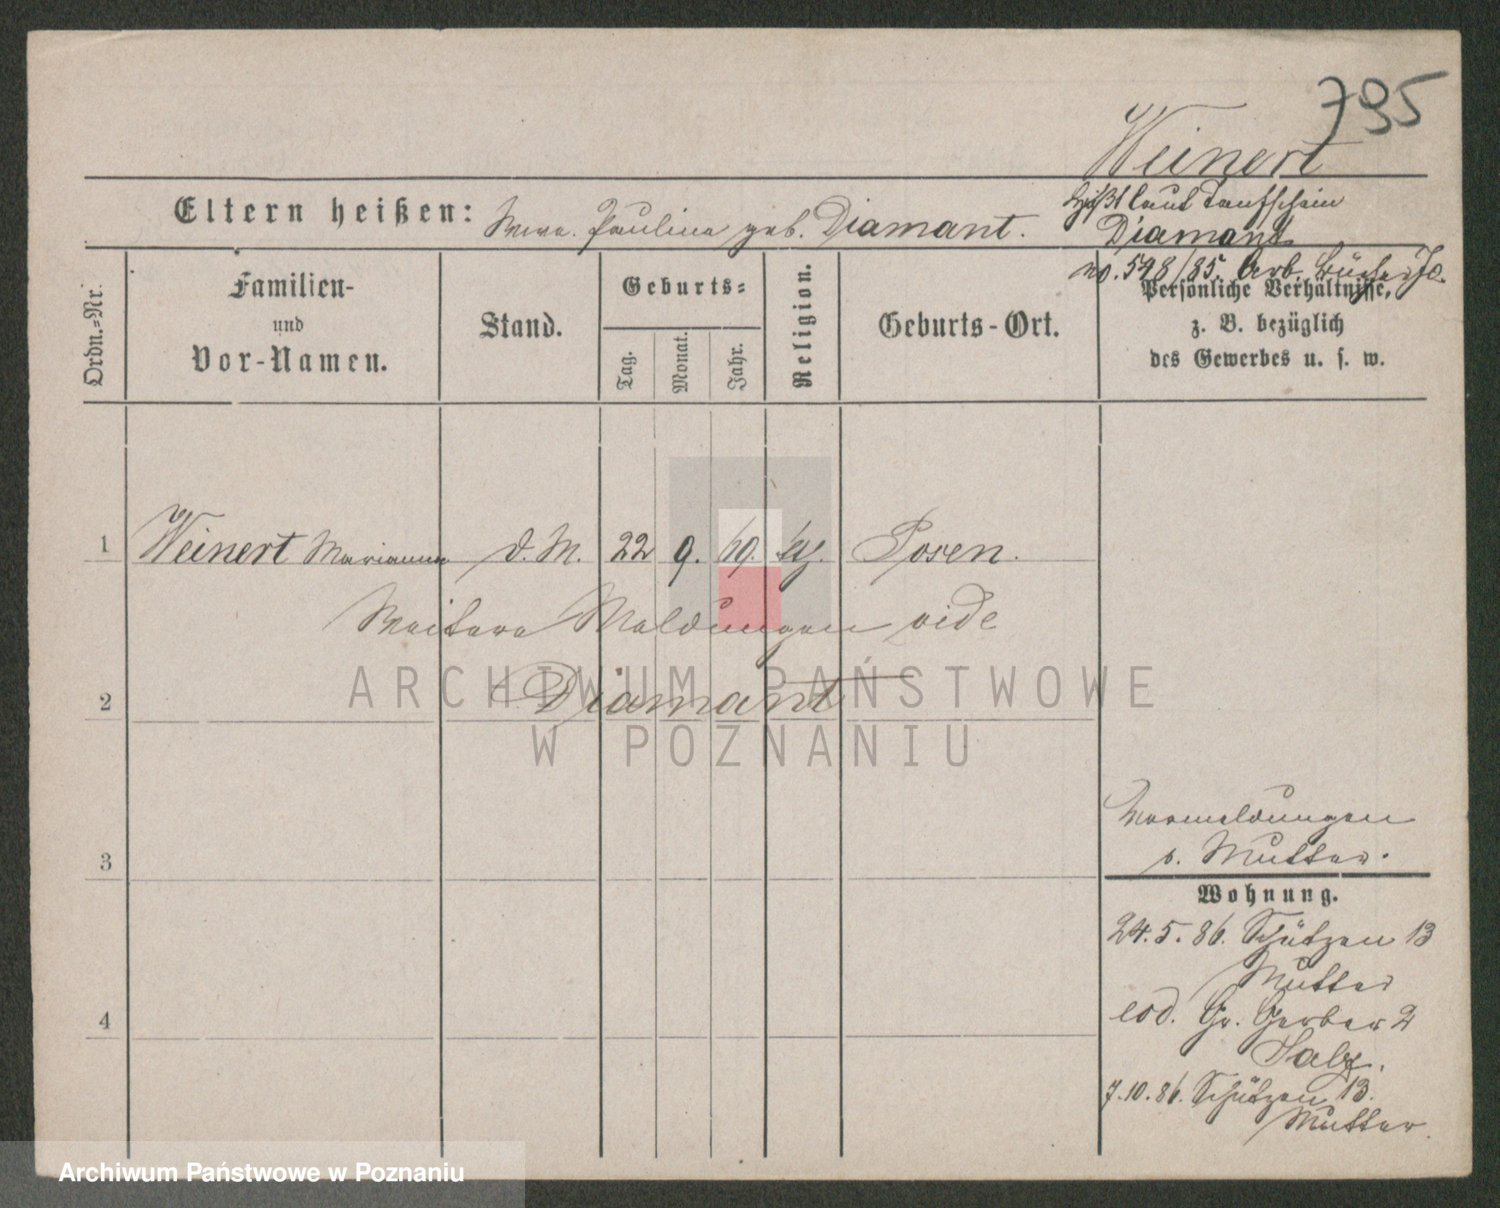 795
Weinert
heißt laut Taufschein
Eltern heißen: Wwe. Pauline geb. Diamant.
Diamant
no. 598/85. Arb. Bücher Jo.
Ordn.=Nr.
Familien-
und
Vor-Namen.
Stand.
Geburts=
Tag.
Monat.
Jahr.
Religion.
Geburts-Ort.
Persönliche Verhältnisse,
z. B. bezüglich
des Gewerbes u. s. w.
1 Weinert Marianna d. M. 22 9. 69. Posen.
Weitere Meldungen vide
2 Diamant
Vormeldungen
s. Mutter.
3
Wohnung.
24. 5. 86. Schützen 13
Mutter
4
eod. Gr. Gerber 2
7. 10. 86. Schützen 13.
Mutter.
ARCHIWUM PAŃSTWOWE
W POZNANIU
Archiwum Państwowe w Poznaniu